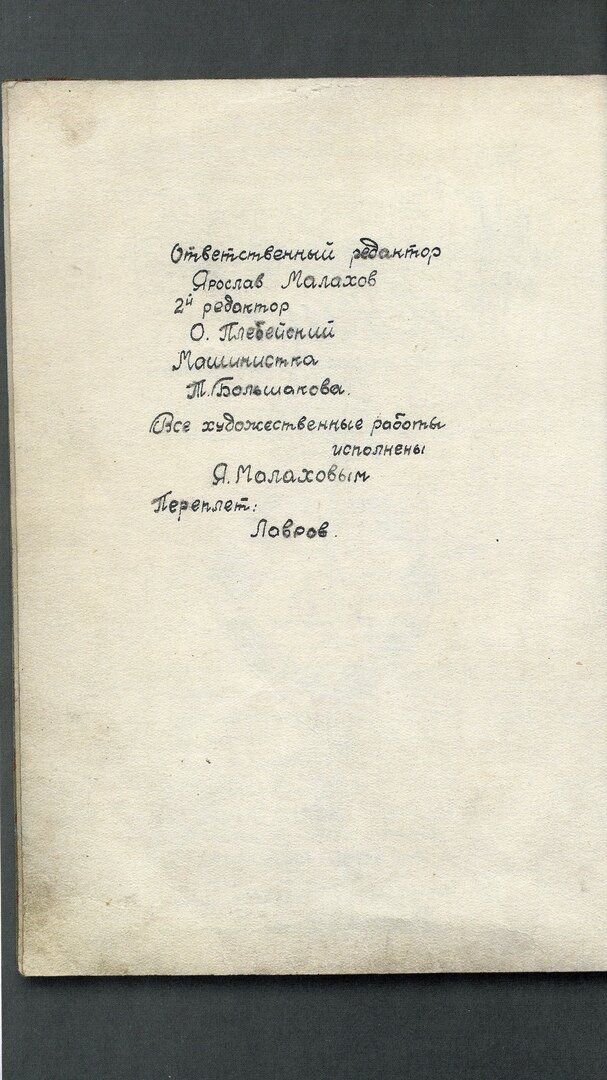 Ответственный редактор
Ярослав Малахов
2й редактор
О. Плебейский
Машинистка
Т. Большакова.
Все художественные работы
исполнены
Я. Малаховым
Переплет:
Лавров.